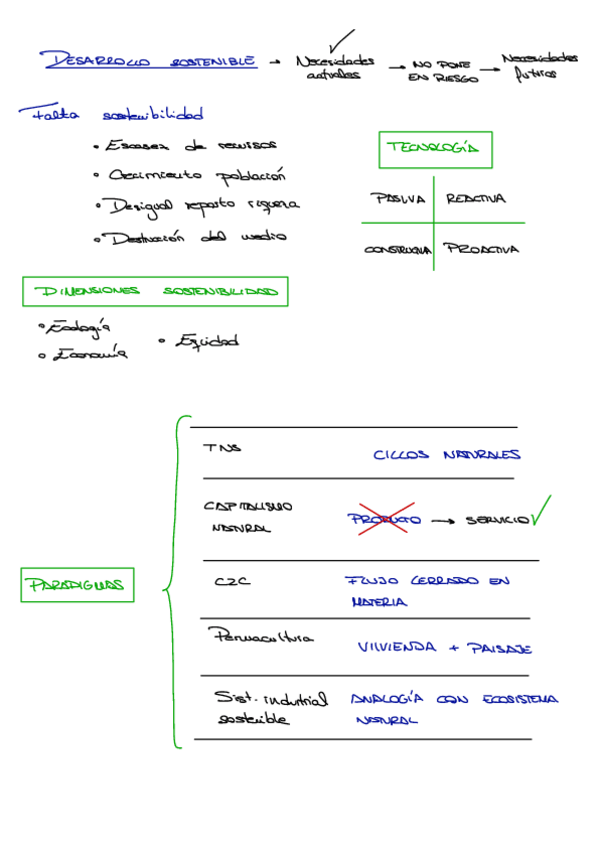 DESARROLLO SOSTENIBLE → Necesidades actuales → NO PONE EN RIESGO → Necesidades futuras
Falta sostenibilidad
• Escasez de recursos
• Crecimiento población
• Desigual reparto riqueza
• Destrucción del medio
TECNOLOGÍA
PASIVA REACTIVA
CONSTRUCTIVA PROACTIVA
DIMENSIONES SOSTENIBILIDAD
• Ecología
• Economía
• Equidad
PARADIGMAS
TNS CICLOS NATURALES
CAPITALISMO NATURAL PRODUCTO → SERVICIO
C2C FLUJO CERRADO EN MATERIA
Permacultura VIVIENDA + PAISAJE
Sist. industrial sostenible ANALOGÍA CON ECOSISTEMA NATURAL